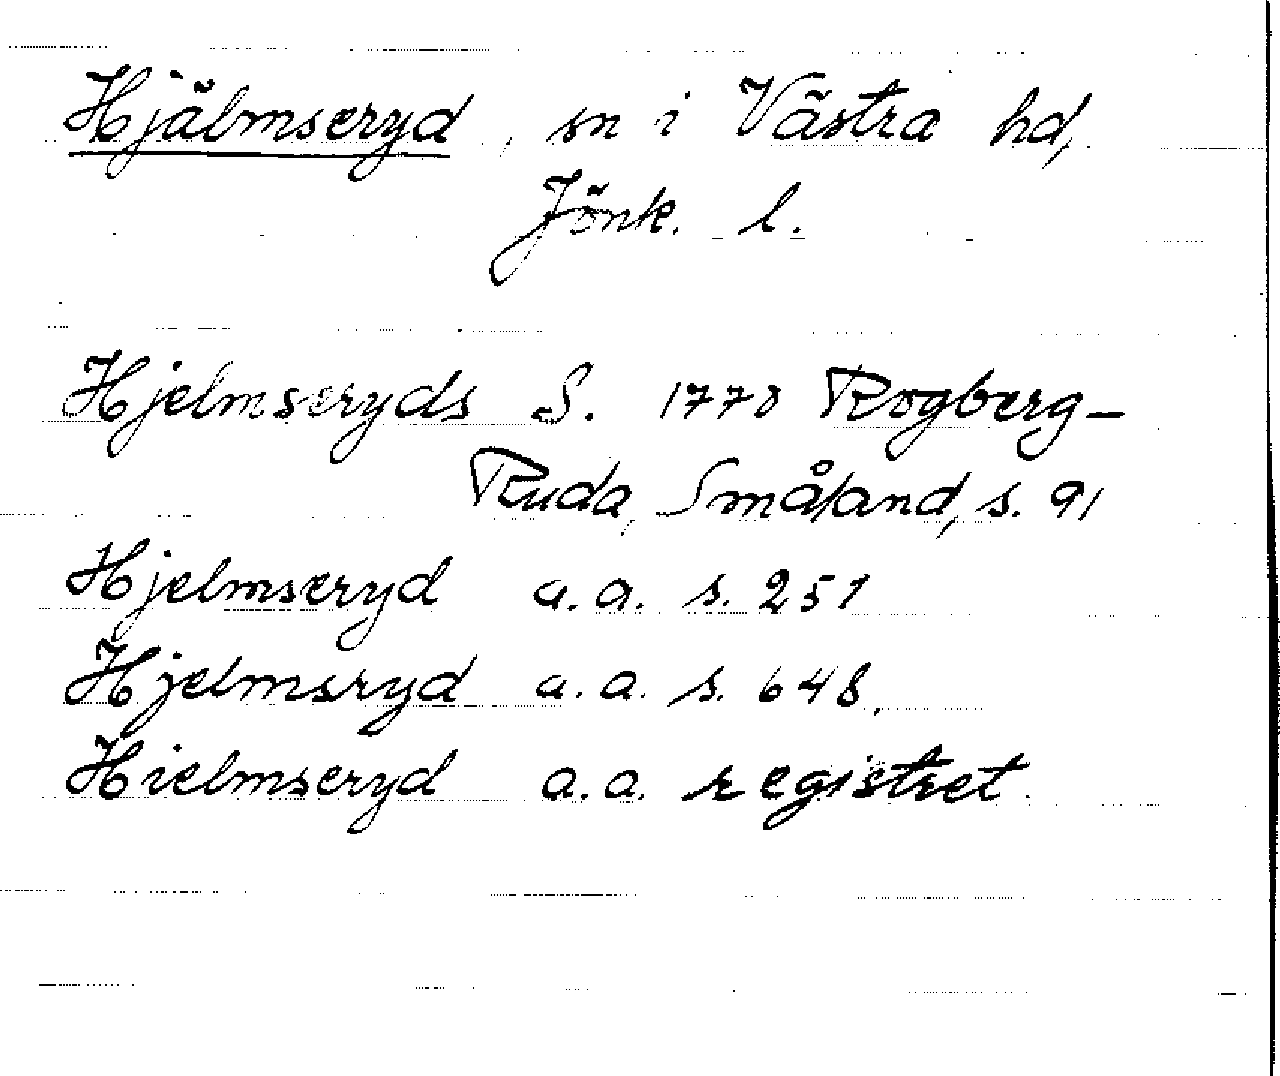 Hjälmseryd, sn i Västra hd,
Jönk. l.
Hjelmseryds S. 1770 Rogberg-
Ruda, Småland, s. 91
Hjelmseryd a.a. s. 251
Hjelmsryd a.a. s. 648.
Hielmseryd a.a. registret.